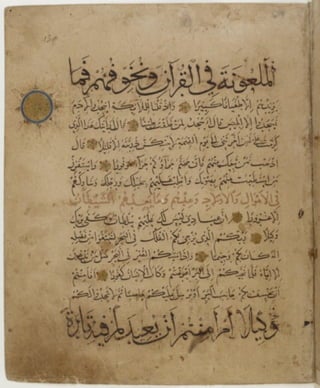 الملعونة في القرآن ونخوفهم فما
يزيدهم إلا طغيانا كبيرا وإذ قلنا للملائكة اسجدوا لآدم
فسجدوا إلا إبليس قال أأسجد لمن خلقت طينا قال أرأيتك هذا الذي
كرمت علي لئن أخرتن إلى يوم القيمة لأحتنكن ذريته إلا قليلا قال
اذهب فمن تبعك منهم فإن جهنم جزاؤكم جزاء موفورا واستفزز
من استطعت منهم بصوتك وأجلب عليهم بخيلك ورجلك وشاركهم
في الأموال والأولاد وعدهم وما يعدهم الشيطان
إلا غرورا إن عبادي ليس لك عليهم سلطان وكفى بربك
وكيلا ربكم الذي يزجي لكم الفلك في البحر لتبتغوا من فضله
إنه كان بكم رحيما وإذا مسكم الضر في البحر ضل من تدعون
إلا إياه فلما نجاكم إلى البر أعرضتم وكان الإنسان كفورا أفأمنتم
أن يخسف بكم جانب البر أو يرسل عليكم حاصبا ثم لا تجدوا لكم
وكيلا أم أمنتم أن يعيدكم فيه تارة